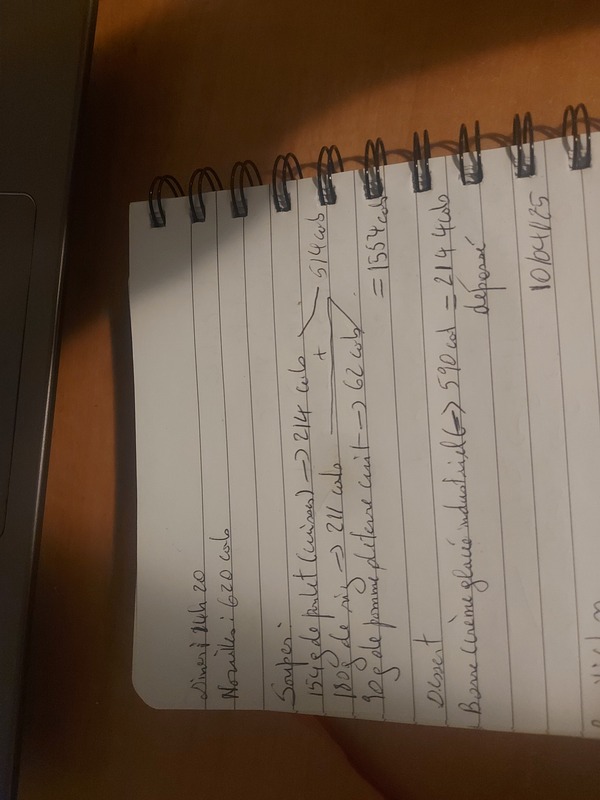 Diner: 14h20
Nouilles: 620 cals
Souper:
154g de poulet (cuisses) -> 214 cals
514 cals
180g de riz -> 211 cals +
90g de pomme de terre cuit -> 62 cals
= 1554 cals
Dessert
Barre crème glacé industriel (->) 590 cal = 2144 cals
dépassé
10/04/25